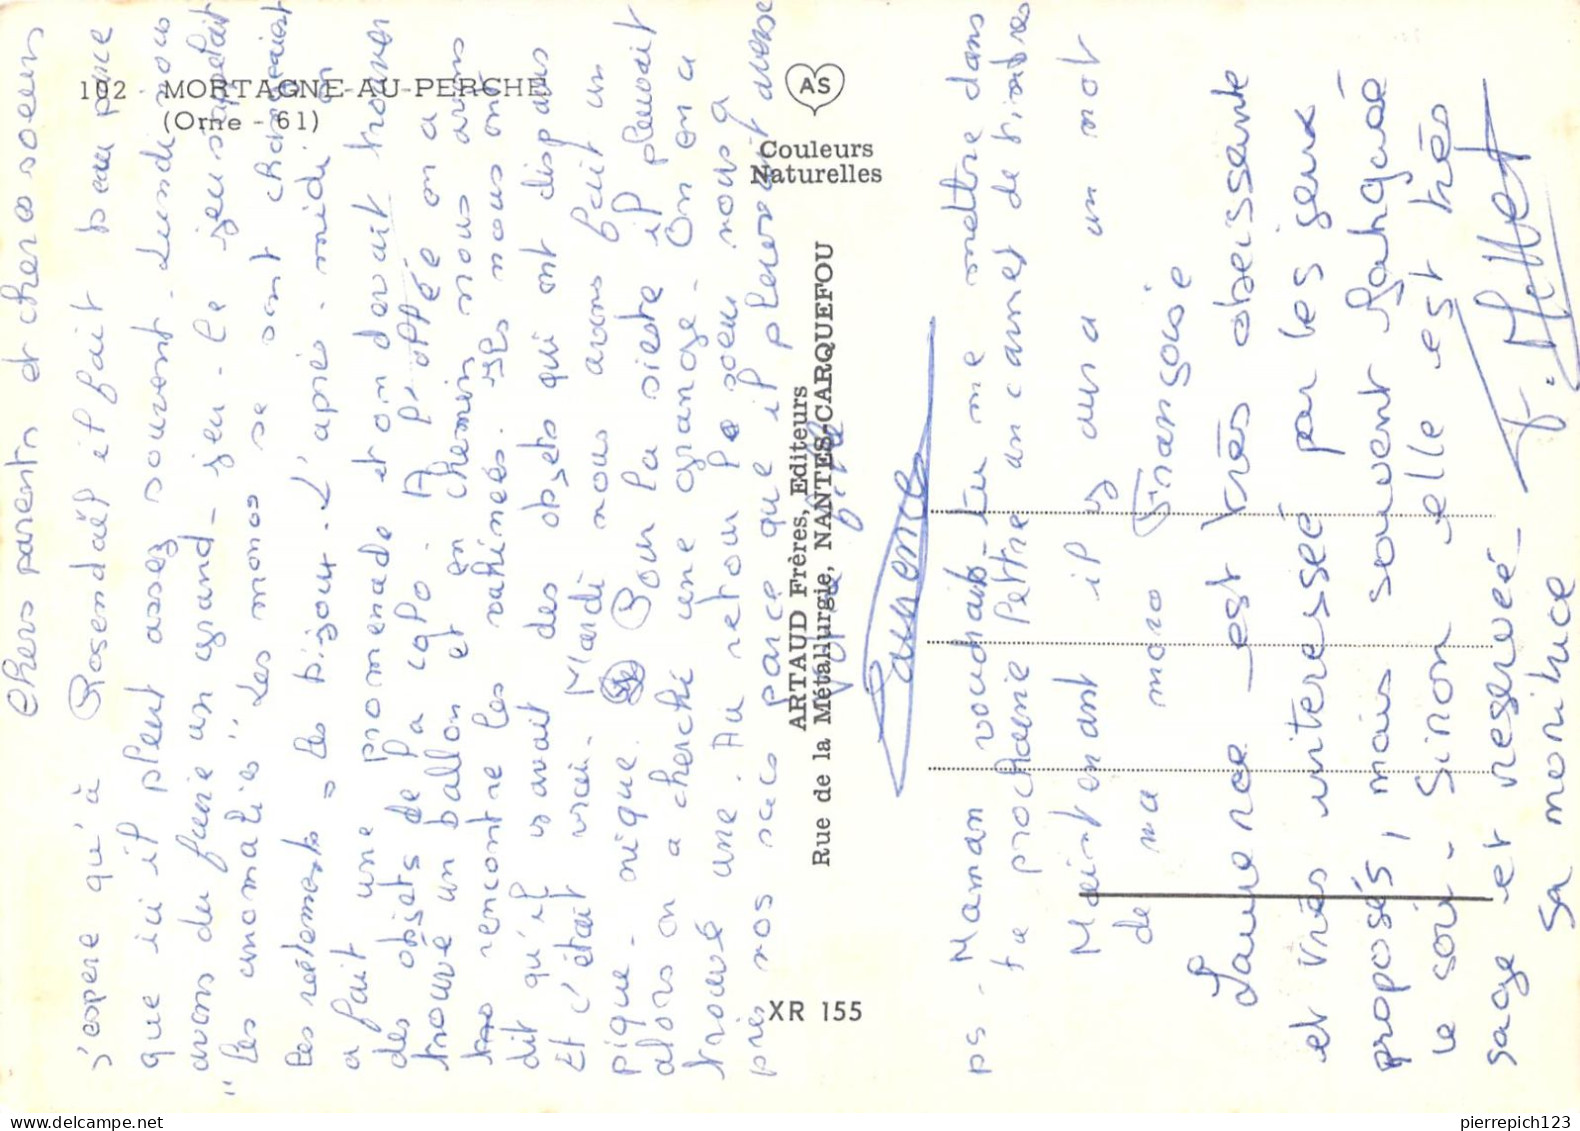 102 MORTAGNE-AU-PERCHE
(Orne - 61)
AS
Couleurs
Naturelles
ARTAUD Frères, Editeurs
Rue de la Métallurgie, NANTES-CARQUEFOU
XR 155
Chers parents et cheres soeurs
j'espere qu'à Rosendaël il fait beau parce
que ici il pleut assez souvent. Lundi nous
avons du faire un grand-jeu. le jeu s'apelait
"les anomalies" Les monos se sont
les vêtements les bijoux. L'après-midi on
a fait une promenade et on devait trouver
des objets de la colo. A on a
trouvé un ballon et en chemin nous avons
rencontre les . Ils nous ont
dit qu'il y avait des objets qui ont disparus
Et c'était vrai. Mardi nous avons fait un
pique-nique. Pour la sieste il pleuvait
alors on a cherché une grange. On en a
trouvé une. Au retour le soeur nous a
près nos sacs parce que il pleuvait averse
Laurence
ps - Maman voudrais-tu me mettre dans
ta prochaine lettre un carnet de timbres
Maintenant il y aura un mot
de ma mono Françoise
Laurence est très obeissante
et très interessée par les jeux
proposés, mais souvent fatiguée
le soir. Sinon elle est très
sage et reservée.
sa monitrice